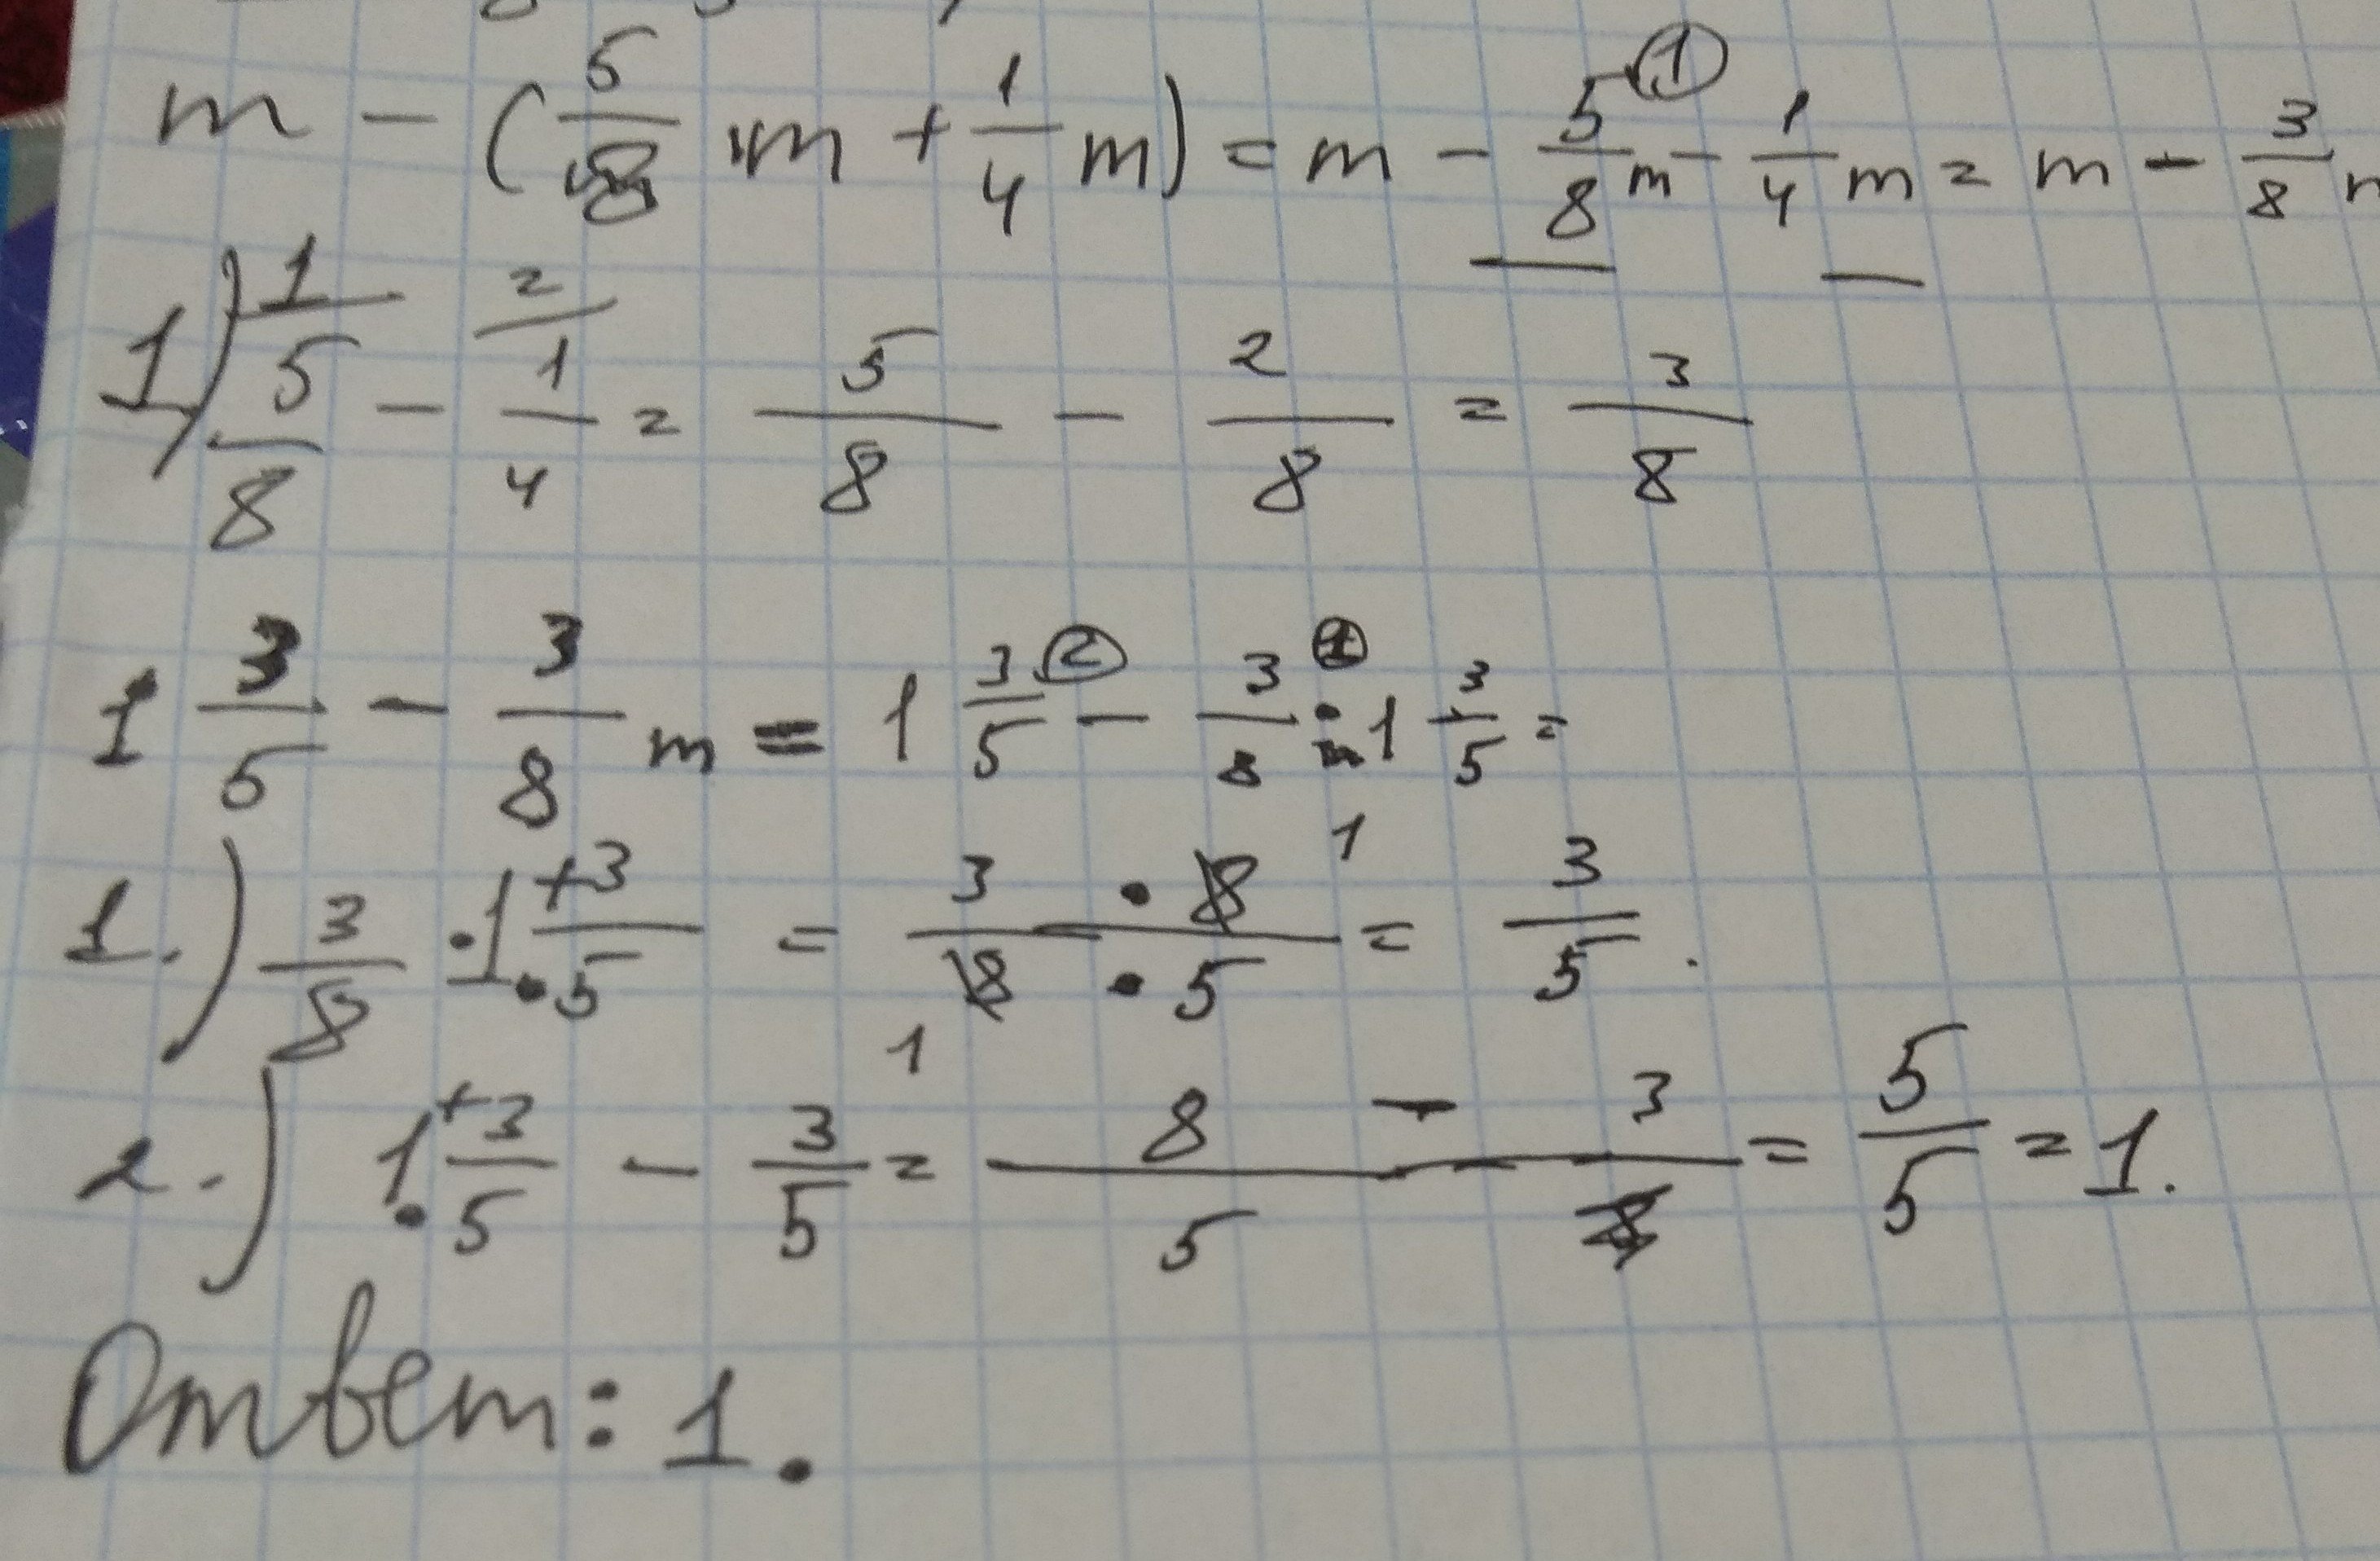 m - (5/8 m + 1/4 m) = m - 5/8 m ① - 1/4 m = m - 3/8
1) 1/5/8 - 2/1/4 = 5/8 - 2/8 = 3/8
1 3/5 - 3/8 m = 1 3/5 ② - 3/8 · 1 3/5 =
1.) 3/8 · 1 +3/5 = 3 · 8 1/8 · 5 1 = 3/5.
2.) 1 +3/5 - 3/5 = 8 - 3/5 = 5/5 = 1.
Ответ: 1.